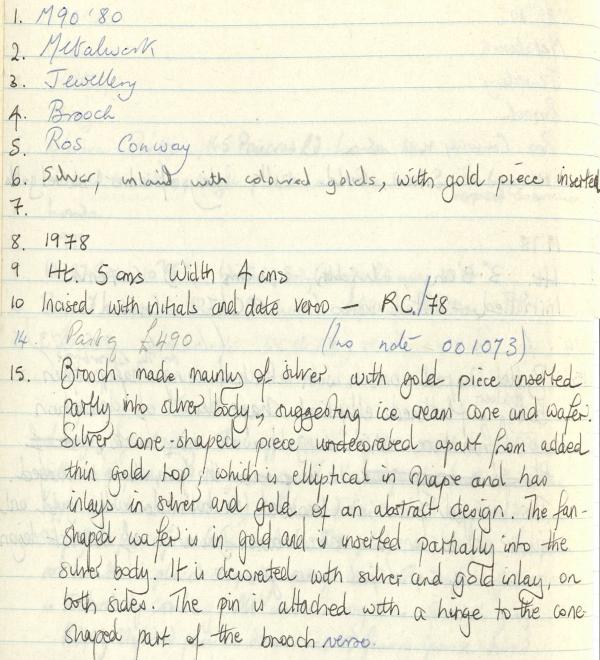 1. M90 '80
2. Metalwork
3. Jewellery
4. Brooch
5. Ros Conway
6. Silver, inlaid with coloured golds, with gold piece inserted
7.
8. 1978
9 Ht. 5 cms Width 4 cms
10 Incised with initials and date verso — RC./78
14. Part of £490 (Ino note 001073)
15. Brooch made mainly of silver with gold piece inserted
partly into silver body, suggesting ice cream cone and wafer.
Silver cone-shaped piece undecorated apart from added
thin gold top, which is elliptical in shape and has
inlays in silver and gold of an abstract design. The fan-
shaped wafer is in gold and is inserted partially into the
silver body. It is decorated with silver and gold inlay, on
both sides. The pin is attached with a hinge to the cone
shaped part of the brooch verso.